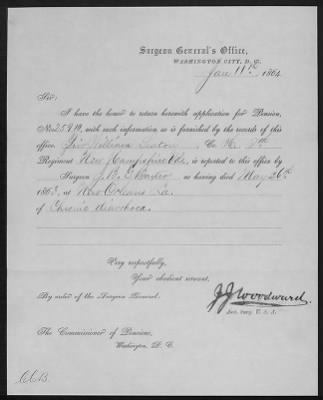 Surgeon General's Office,
WASHINGTON CITY, D. C.
Jan 11th 1864
Sir:
I have the honor to return herewith application for Pension,
No. 25.919, with such information as is furnished by the records of this
office. Priv William Co. 8th
Regiment New Hampshire Vols, is reported to this office by
Surgeon J. B. as having died May 26th
1863, at New Orleans La.
of Chronic diarrhoea.
Very respectfully,
Your obedient servant,
By order of the Surgeon General:
J J Woodward.
Ass. Surg. U. S. A.
The Commissioner of Pensions,
Washington, D. C.